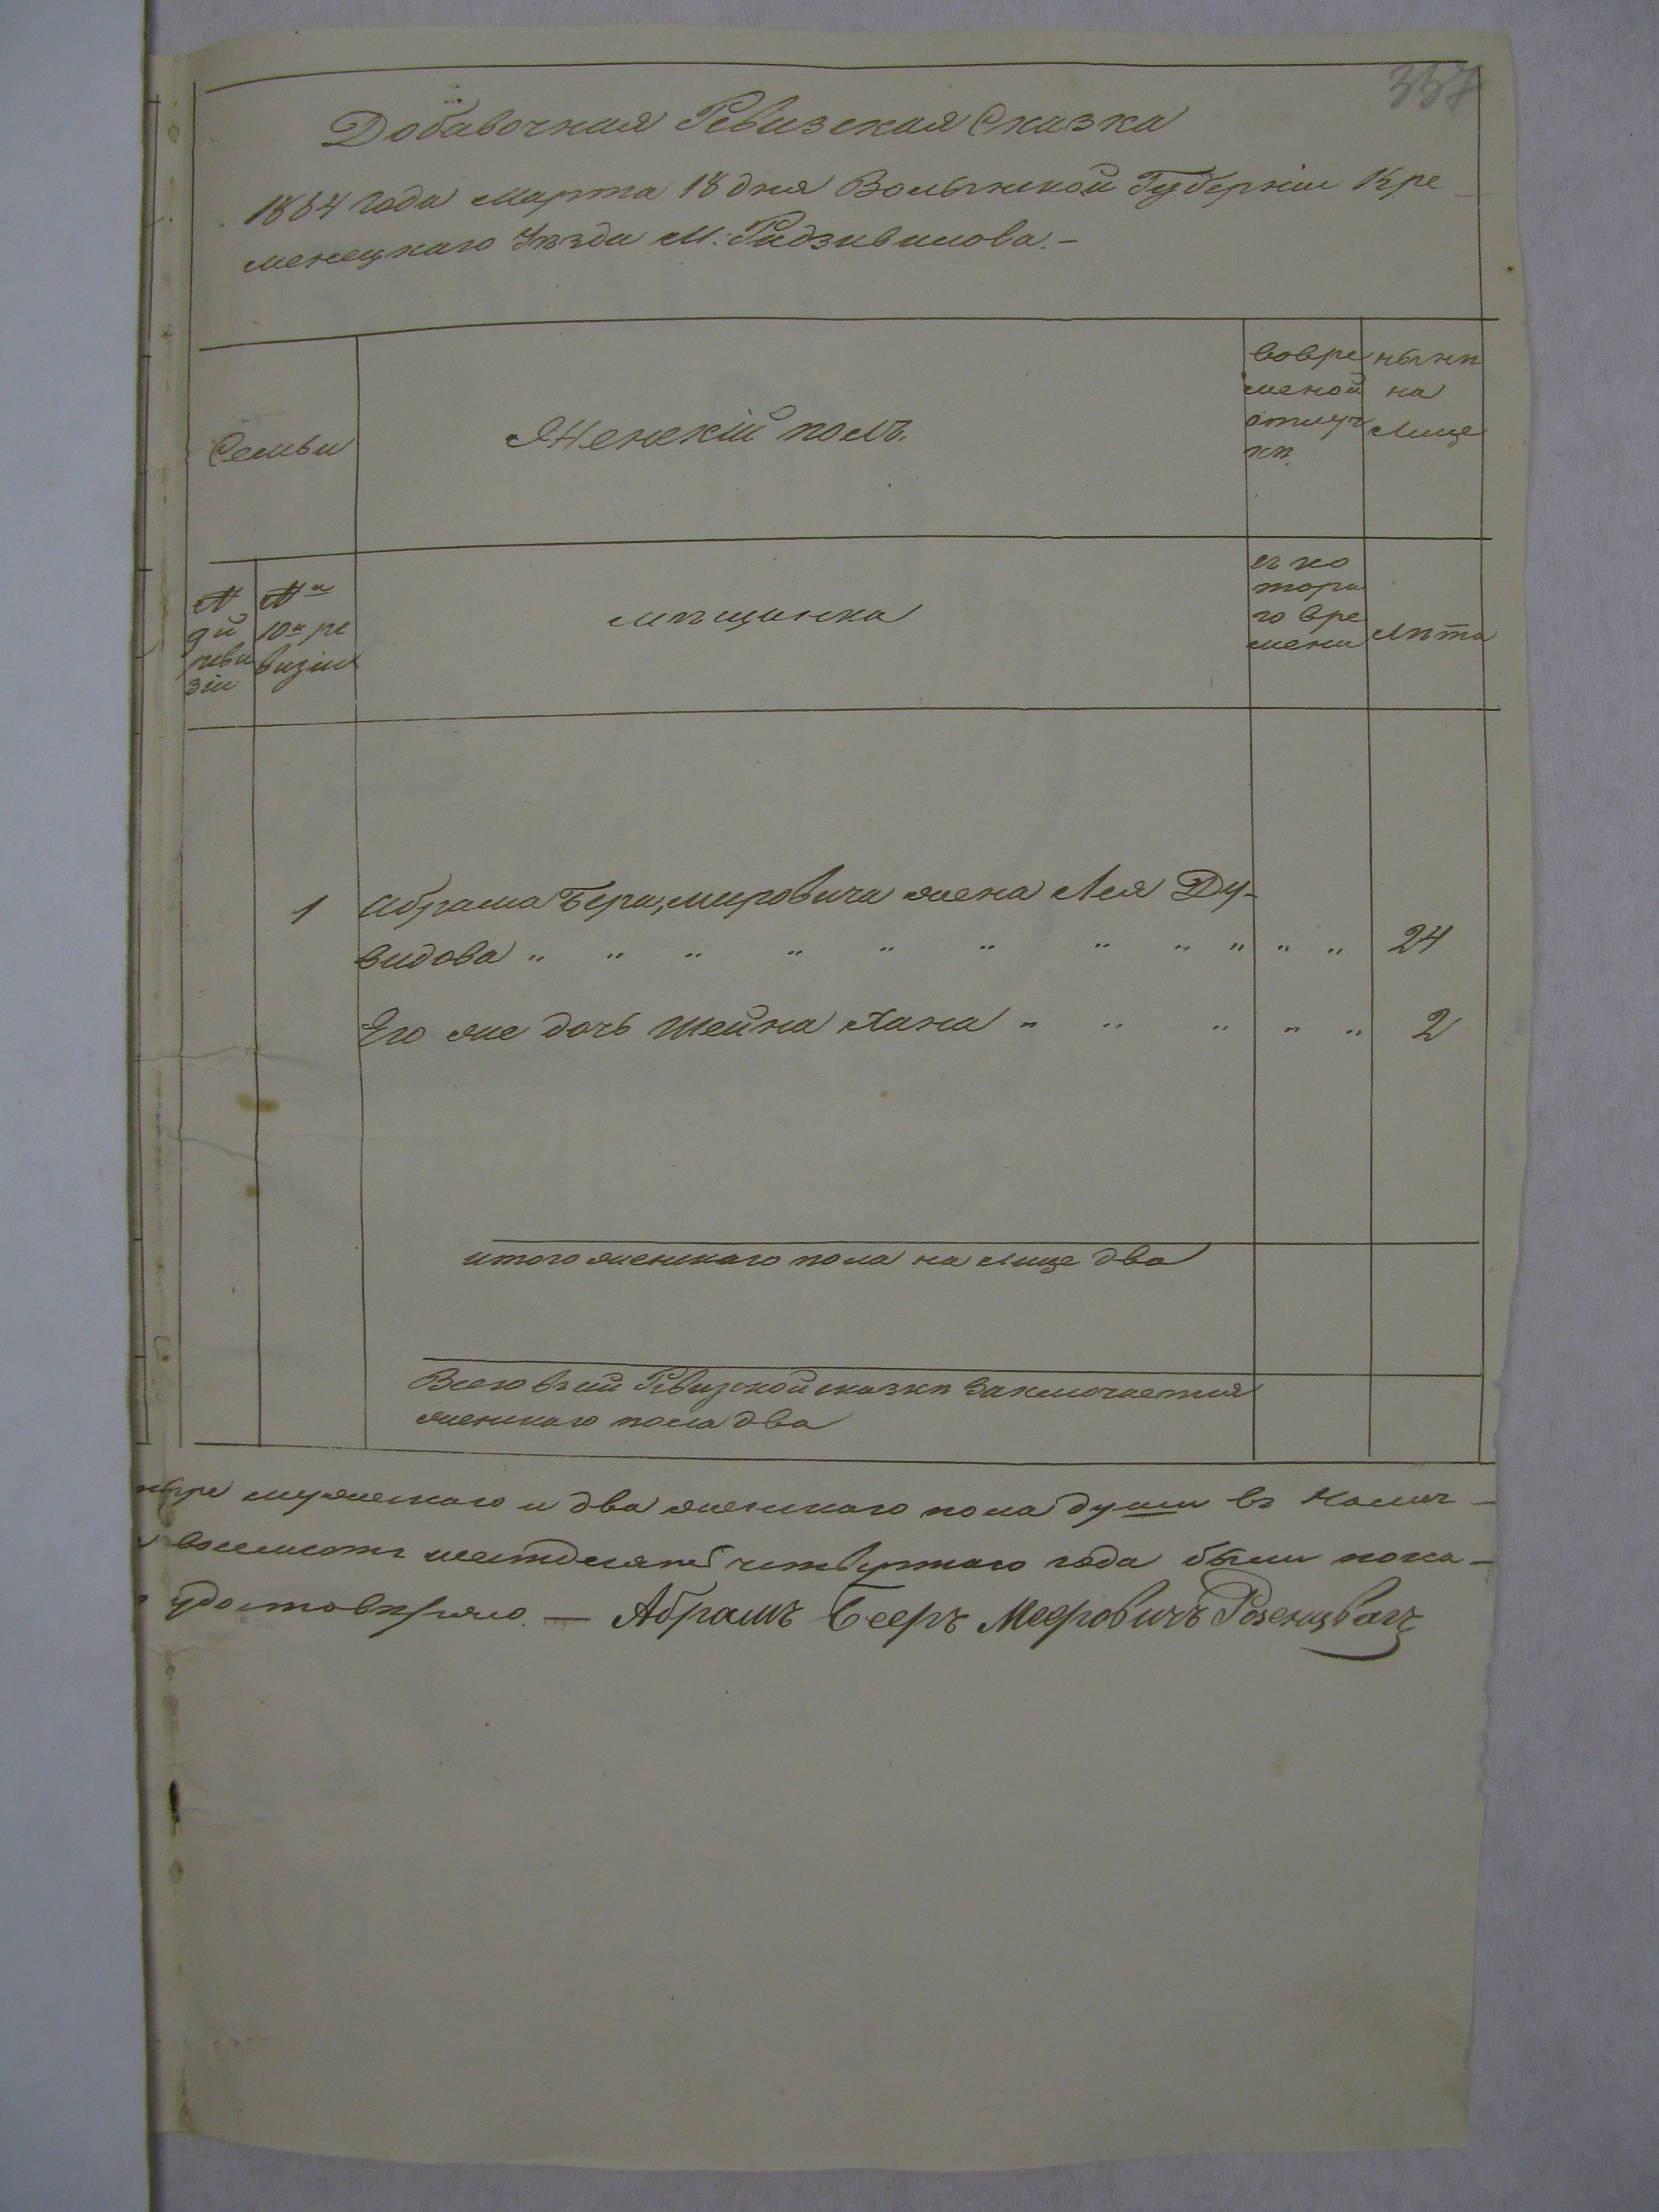 337
Добавочная Ревизская Сказка
1864 года Марта 18 дня Волынской Губерніи Кре
менецкаго Уѣзда М: Радзивилова. –
Семьи
Женскій полъ.
вовре
меной
отлуч
кѣ.
нынѣ
на
лице
№
9й
реви
зіи
№
10й ре
визіи
мѣщанка
съ ко
тора
го вре
мени
Лѣта
1 Абрама Бера, мировича жена Лея Ду-
видова " " " " " " " " " " " 24
Его же дочь Шейна Хана " " " " " 2
итого женскаго пола на лице два
Всего въ сей Ревизской сказкѣ заключается
женскаго пола два
мужескаго и два женскаго пола души въ
четвертаго года были пока-
удостовѣряю. — Абрамъ Бееръ Мееровичъ Розенцвагъ